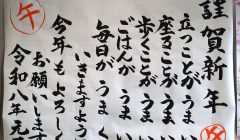 謹賀新年
立つことがうま
座ることがうま
歩くことがうま
ごはんが うま
毎日が うまく い
いきますよう
今年もよろしく
お願いします
令和八年元
午